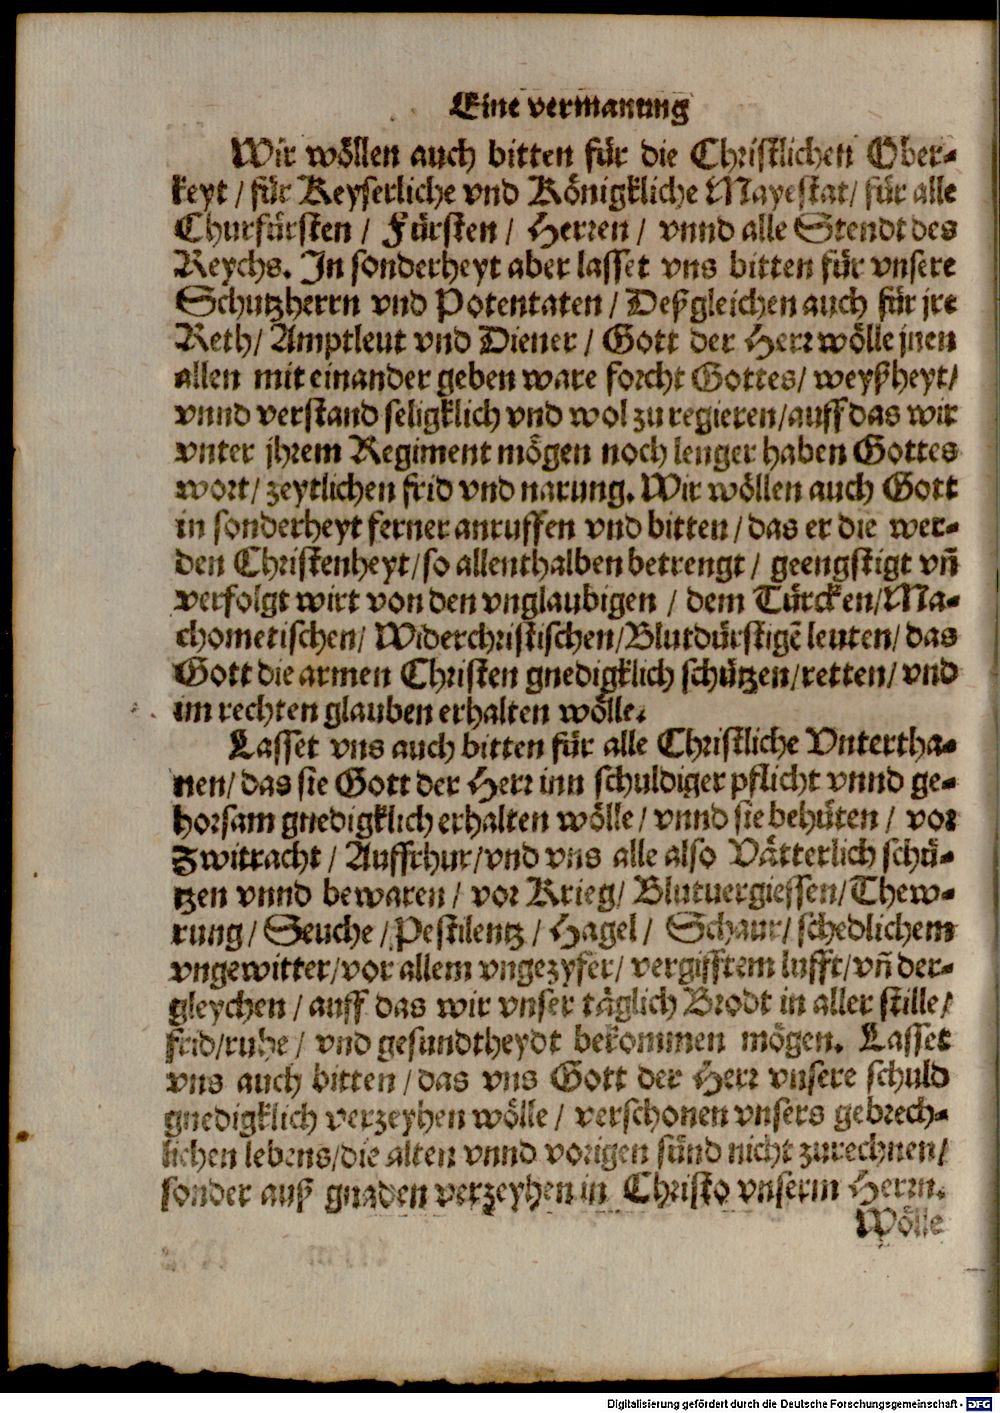 Eine vermanung
Wir wöllen auch bitten für die Christlichen Ober-
keyt / für Keyserliche vnd Königkliche Mayestat/ für alle
Churfürsten / Fürsten / Herren / vnnd alle Stendt des
Reychs. In sonderheyt aber lasset vns bitten für vnsere
Schutzherrn vnd Potentaten / Deßgleichen auch für jre
Reth/ Amptleut vnd Diener / Gott der Herr wölle jnen
allen mit einander geben ware forcht Gottes/ weyßheyt/
vnnd verstand seligklich vnd wol zu regieren/auff das wir
vnter jhrem Regiment mögen noch lenger haben Gottes
wort/ zeytlichen frid vnd narung. Wir wöllen auch Gott
in sonderheyt ferner anruffen vnd bitten/das er die wer-
den Christenheyt/so allenthalben betrengt / geengstigt vñ
verfolgt wirt von den vnglaubigen / dem Türcken/Ma-
chometischen/ Widerchristischen/Blutdürstigẽ leuten/ das
Gott die armen Christen gnedigklich schützen/retten/ vnd
im rechten glauben erhalten wölle.
Lasset vns auch bitten für alle Christliche Vntertha-
nen/ das sie Gott der Herr inn schuldiger pflicht vnnd ge-
horsam gnedigklich erhalten wölle / vnnd sie behüten / vor
Zwitracht / Auffrhur/vnd vns alle also Vätterlich schü-
tzen vnnd bewaren / vor Krieg/ Blutuergiessen/Thew-
rung/ Seuche / Pestilentz / Hagel / Schaur/ schedlichem
vngewitter/vor allem vngezyfer/ vergifftem lufft/vñ der-
gleychen / auff das wir vnser täglich Brodt in aller stille/
frid/ruhe / vnd gesundtheydt bekommen mögen. Lasset
vns auch bitten / das vns Gott der Herr vnsere schuld
gnedigklich verzeyhen wölle / verschonen vnsers gebrech-
lichen lebens/die alten vnnd vorigen sünd nicht zurechnen/
sonder auß gnaden verzeyhen in Christo vnserm Herrn.
Wölle
Digitalisierung gefördert durch die Deutsche Forschungsgemeinschaft - DFG